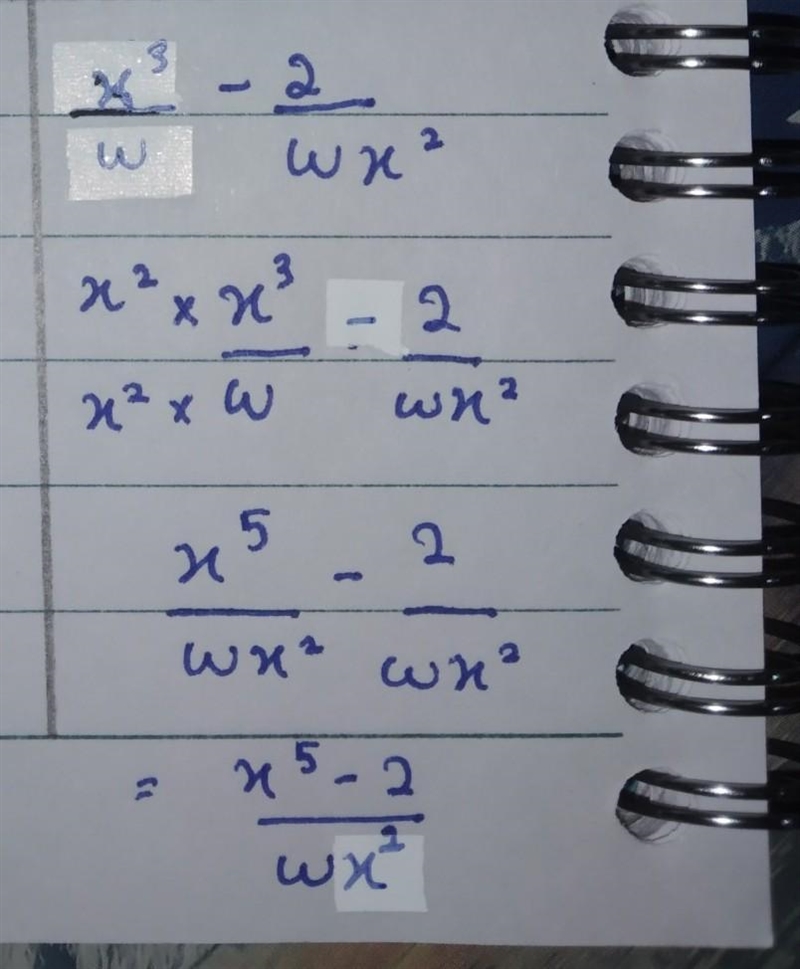 x³/w - 2/wx²
x² × x³/x² × w - 2/wx²
x⁵/wx² - 2/wx²
= x⁵ - 2/wx²